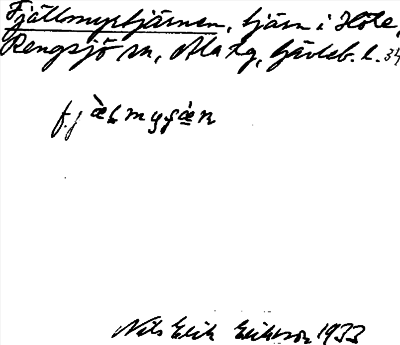 Fjällmyrtjärnen, tjärn i Höle,
Rengsjö sn, Ala hg, Gävleb. l. 34
Nils Erik Eriksson 1933